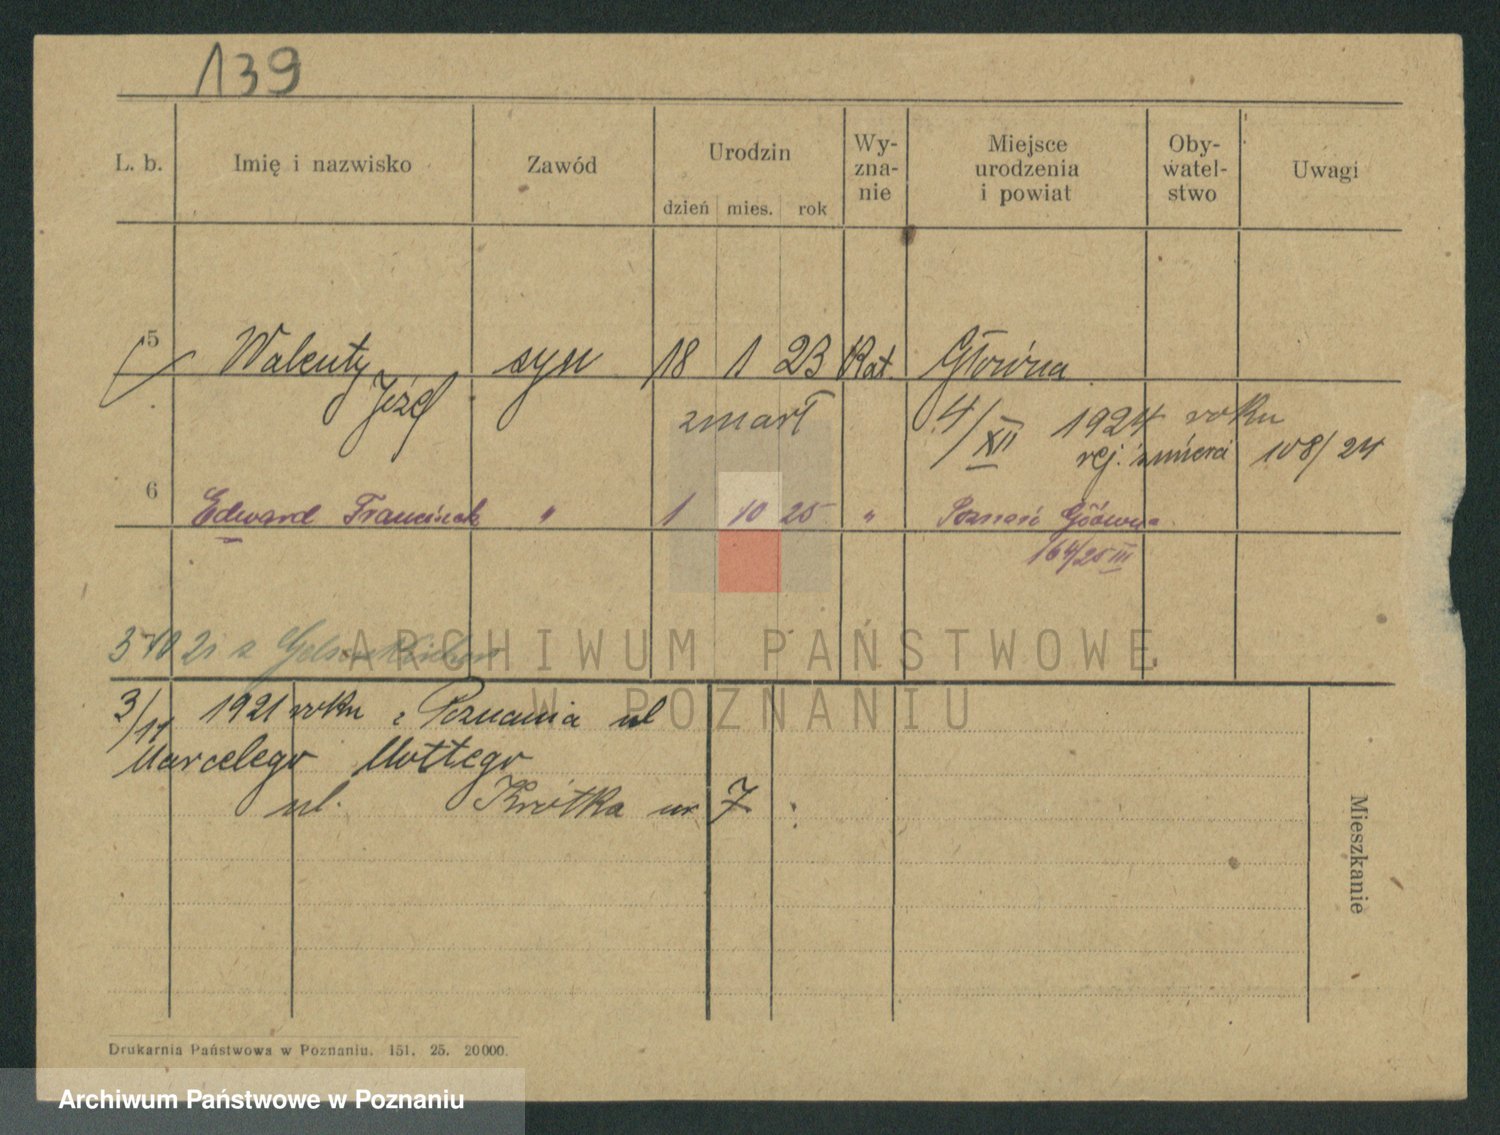 139
L. b. Imię i nazwisko Zawód Urodzin Wy-zna-nie Miejsce urodzenia i powiat Oby-watel-stwo Uwagi
dzień mies. rok
5 Walenty syn 18 1 23 Kat. Główna
Józef zmarł 4/XII 1924 roku
rej. śmierci 108/24
6 Edward Franciszek " 1 10 25 " Poznań Główna
164/25 III
21 z Gelsenkirchen
ARCHIWUM PAŃSTWOWE
W POZNANIU
3/11 1921 roku z Poznania ul
Marcelego Mottego
ul. Krótka nr 7
Mieszkanie
Drukarnia Państwowa w Poznaniu. 151. 25. 20000.
Archiwum Państwowe w Poznaniu